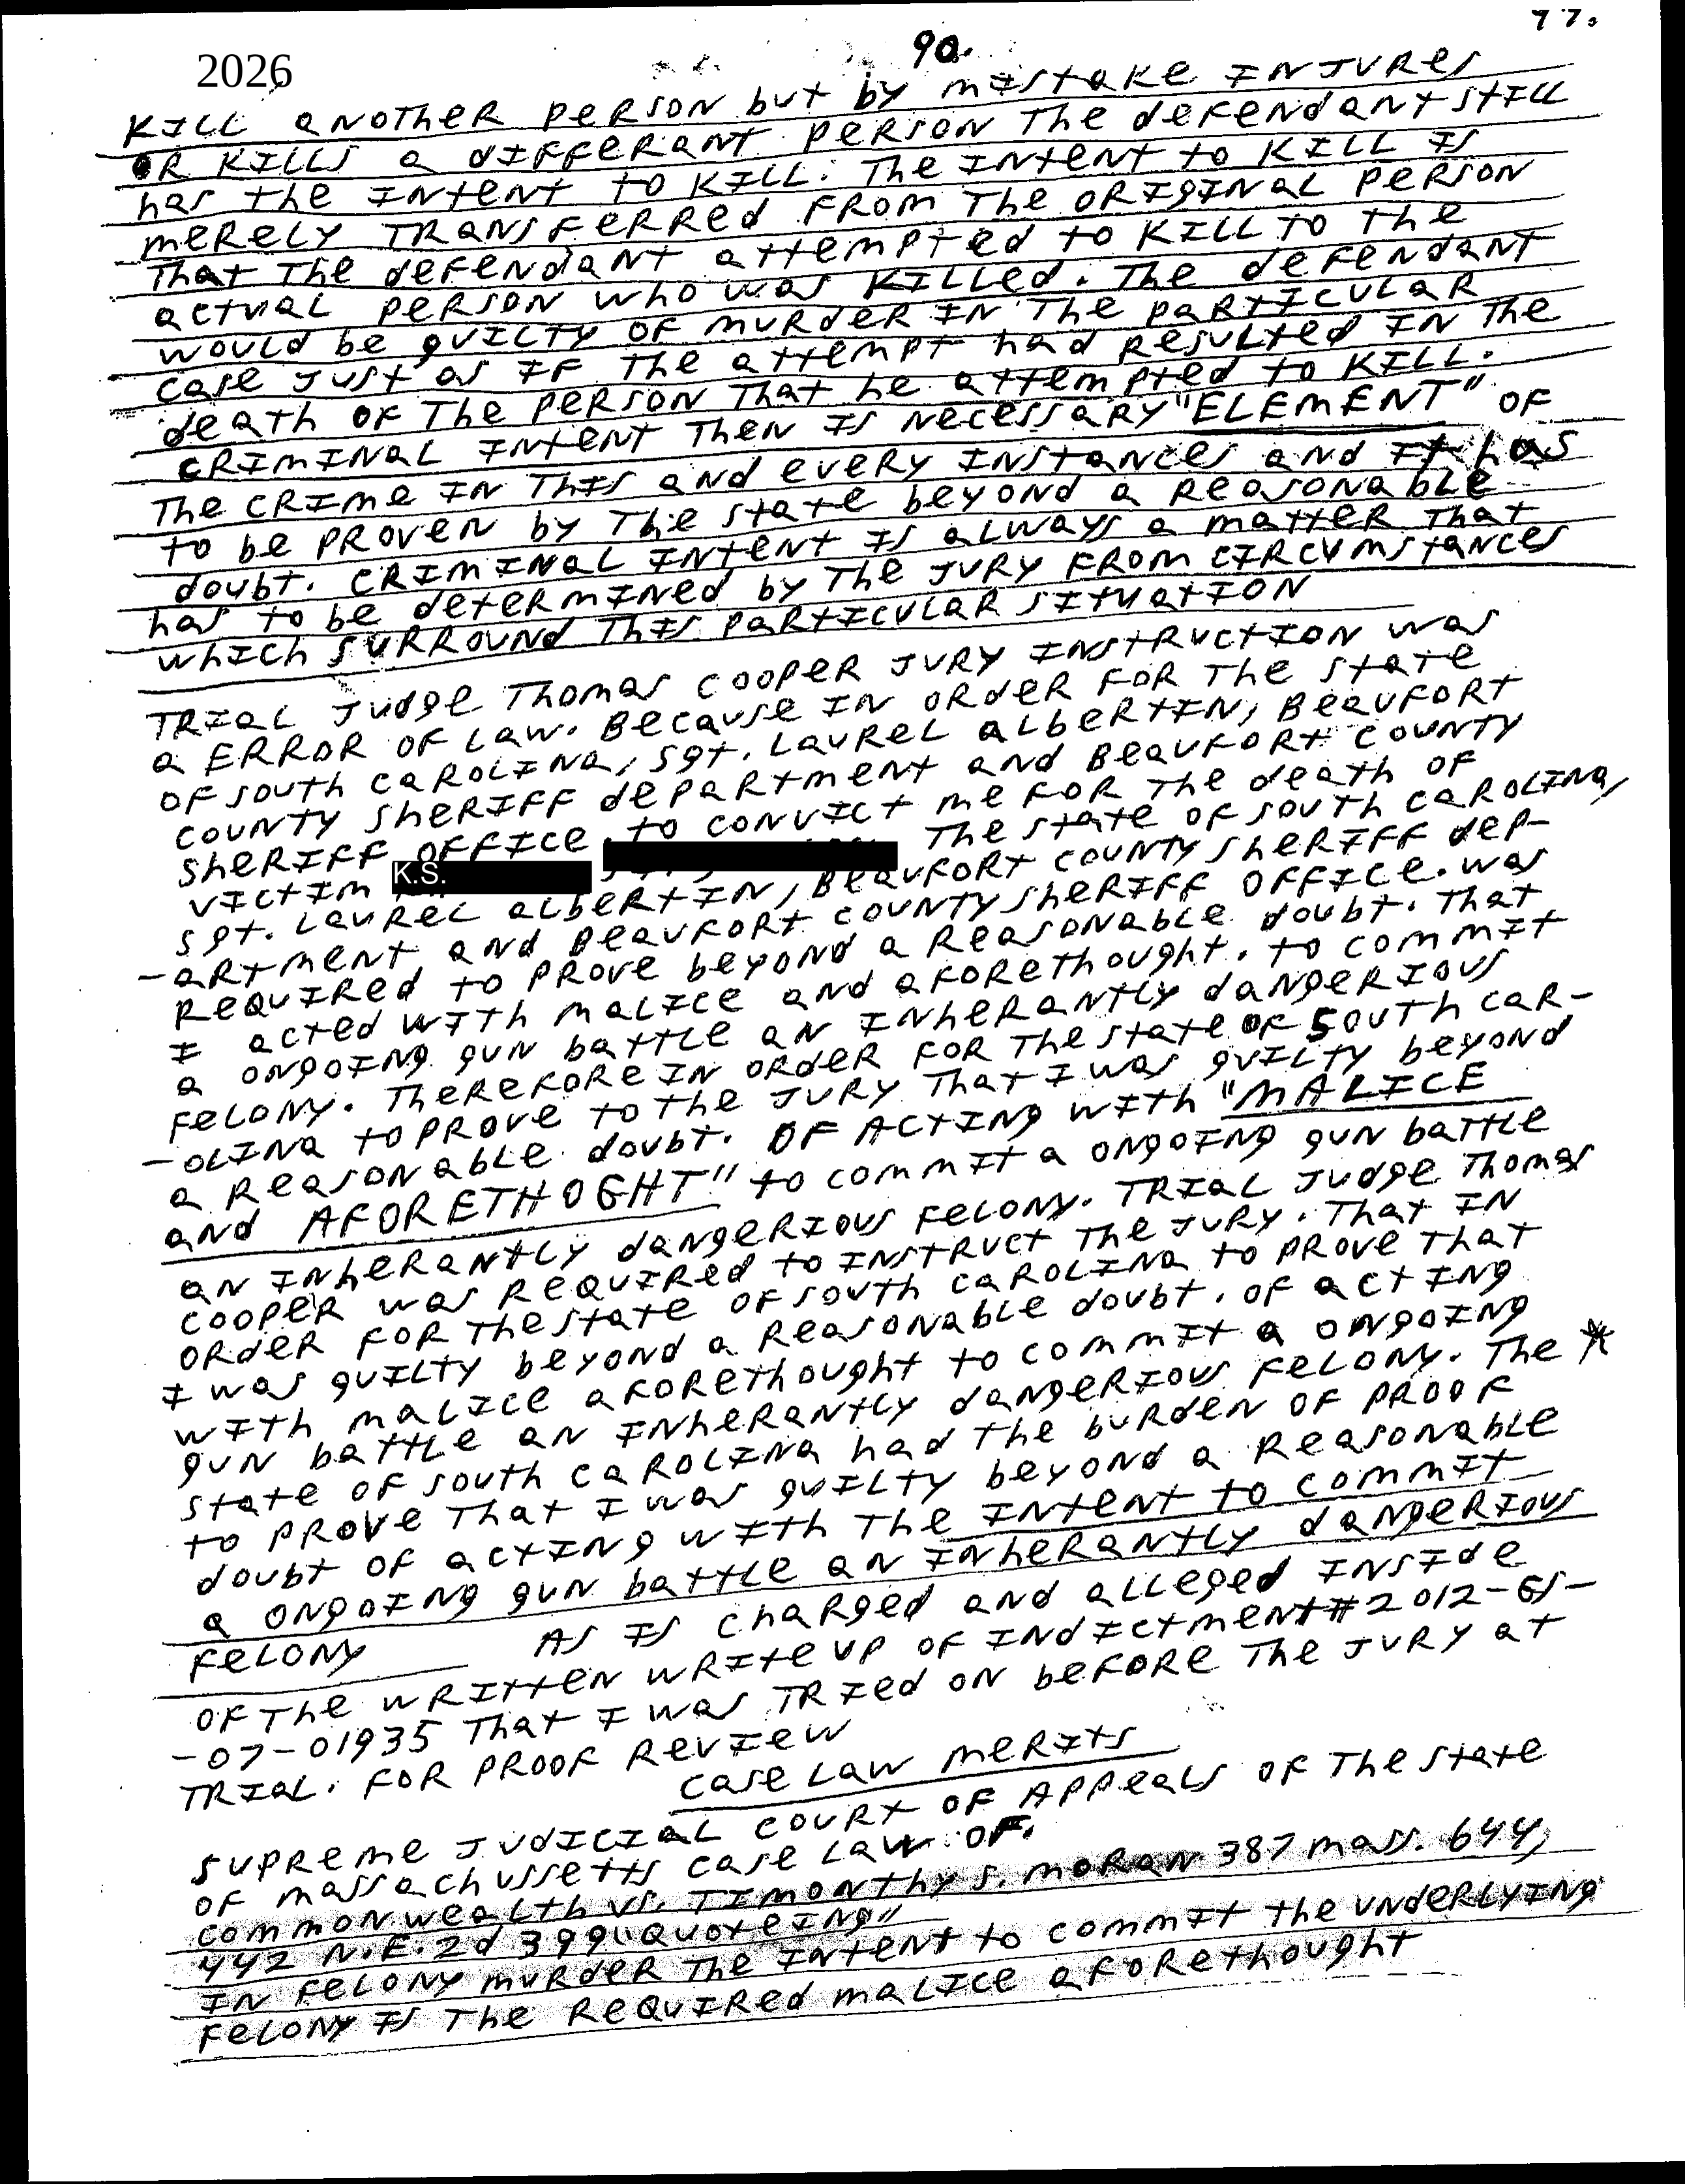 77.
90.
2026
KILL ANOTHER PERSON but by mISTAKE INJURES
OR KILLS a dIFFERANT PERSON The deFENdANT STILL
has the INTENT TO KILL. The INTENT to KILL IS
meRELY TRANSFERRed FROM The ORIGINAL PERSON
That The deFENdANT aTTemPTed to KILL TO The
acTUAL PERSON who was KILLED. The deFENdANT
would be guILTY OF muRdeR IN The PaRTICULaR
case JUST as IF The aTTemPT had ResulTed IN The
death OF The PERSON That he aTTemPTed to KILL.
CRImINaL INTENT Then IS NecessaRY "ELEMENT" OF
The CRIme IN ThIS and eveRY INSTaNces and IT has
to be PROVEN by The State beyond a ReasoNabLe
doubT. CRImINaL INTENT IS aLways a matteR That
has to be deteRmINed by The JuRY FROm CIRCumsTaNces
whIch SuRROuNd ThIS PaRTICuLaR SITuaTION
TRIaL Judge Thomas COOPER JuRY INSTRucTION was
a ERROR OF Law. Because IN ORdeR FOR The State
OF South CaROLINa, Sgt. LauReL aLbeRTIN, BeauFORT
County SheRIFF depaRTment and BeauFORT County
SheRIFF OFFIce to CONVIct me FOR The death OF
VIctIm K.S. The State OF South CaROLINa,
Sgt. LauReL aLbeRTIN, BeauFORT County SheRIFF dep-
-aRTment and BeauFORT County SheRIFF OFFIce. was
RequIRed to PROVE beyond a ReasoNabLe doubt. That
I acted wITh maLIce and aFORethought. to commIT
a ongoINg gun battLe an INheRaNTLy daNgeRIous
FeLONy. TheReFORe IN ORdeR FOR The State OF South CaR-
-OLINa to PROVE to the JuRY That I was guILTY beyond
a ReasoNabLe doubt. OF ActINg wITh "MALICE
and AFORETHOGHT" to commIT a ongoINg gun battLe
an INheRaNTLy daNgeRIous FeLONy. TRIaL Judge Thomas
COOPER was RequIRed to INSTRuct The JuRY. That IN
ORdeR FOR The State OF South CaROLINa to PROVE That
I was guILTY beyond a ReasoNabLe doubt. OF actINg
wITh maLIce aFORethought to commIT a ongoINg
gun battLe an INheRaNTLy daNgeRIous FeLONy. The *
State OF South CaROLINa had The buRdeN OF PROOF
to PROVE That I was guILTY beyond a ReasoNabLe
doubt OF actINg wITh The INTENT to commIT
a ongoINg gun battLe an INheRaNTLy daNgeRIous
FeLONy AS IS chaRged and aLLeged INSIde
OF The wRITTen wRITe up OF INdIctment#2012-GS-
-07-01935 That I was TRIed on beFORe The JuRY at
TRIaL. FOR PROOF RevIew
case Law meRITs
SupReme JudIcIaL CouRT OF AppeaLs OF The State
OF massachussetts case Law OF.
commonweaLth vs. TImonthy S. moRan 387 mass. 644,
442 N.E.2d 399 "QuoteINg"
IN FeLONy muRdeR The INTENT to commIT the undeRLyINg
FeLONy IS The RequIRed maLIce aForethought